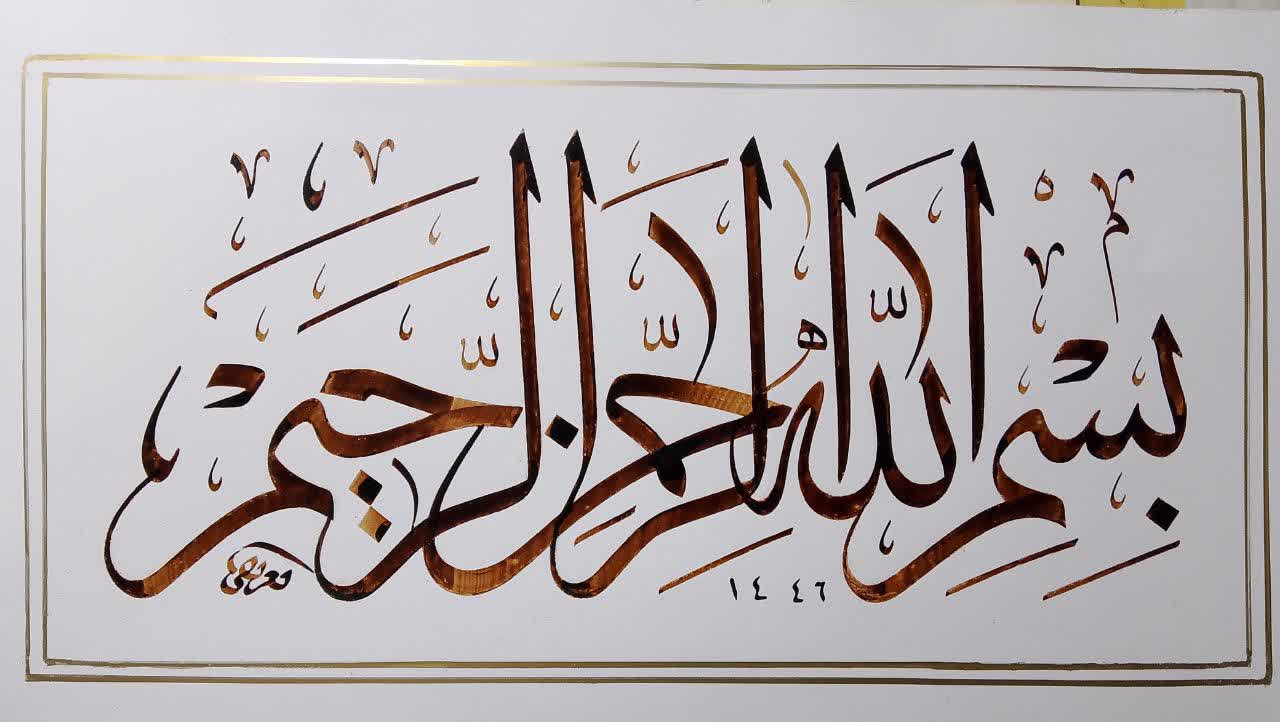 بِسْمِ اللّٰهِ الرَّحْمٰنِ الرَّحِيمِ
١٤٤٦